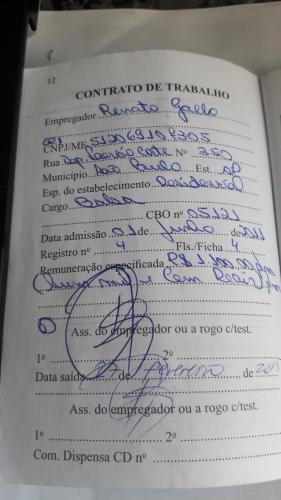 12
CONTRATO DE TRABALHO
Empregador Renato Gallo
CNPJ/MF
Rua Dep. Nº 350
Município São Paulo Est. SP
Esp. do estabelecimento Residencial
Cargo Babá
CBO nº 05121
Data admissão 01 de Junho de 2011
Registro nº 4 Fls./Ficha 4
Remuneração especificada R$ 1.100,00 p/m
(hum mil e cem reais p/m
Ass. do empregador ou a rogo c/test.
1º 2º
Data saída de fevereiro de
Ass. do empregador ou a rogo c/test.
1º 2º
Com. Dispensa CD nº